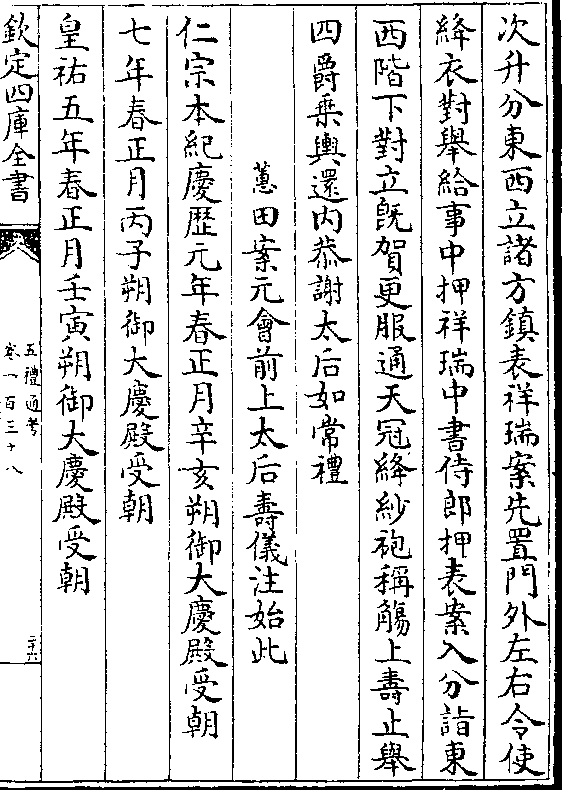 次升分東西立諸方鎮表祥瑞案先置門外左右令使
絳衣對舉給事中押祥瑞中書侍郎押表案入分詣東
西階下對立既賀更服通天冠絳紗袍稱觴上壽止舉
四爵乗輿還内恭謝太后如常禮
蕙田案元會前上太后壽儀注始此
仁宗本紀慶歴元年春正月辛亥朔御大慶殿受朝
七年春正月丙子朔御大慶殿受朝
皇祐五年春正月壬寅朔御大慶殿受朝
欽定四庫全書
五禮通考
卷一百三十八
二十六